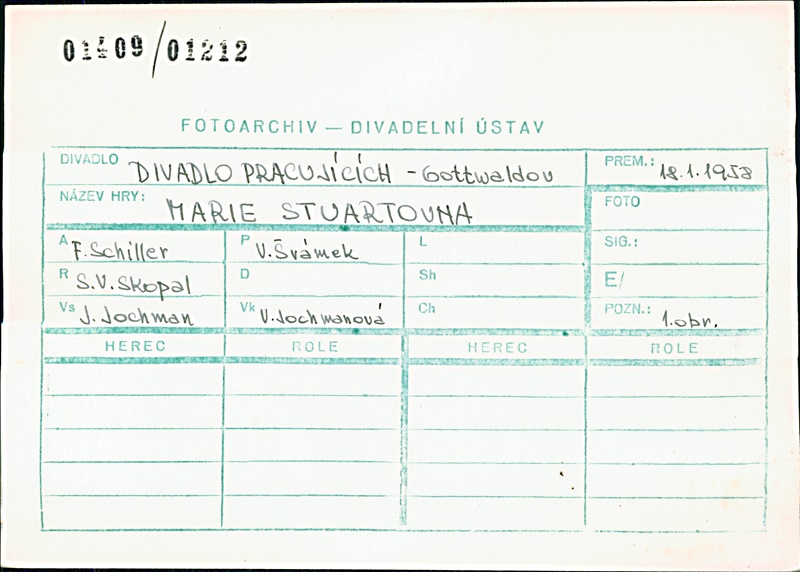 01409/01212
FOTOARCHIV — DIVADELNÍ ÚSTAV
DIVADLO DIVADLO PRACUJÍCÍCH - Gottwaldov PREM.: 18.1.1958
NÁZEV HRY: MARIE STUARTOVNA FOTO
A F. Schiller P V. Švámek L SIG.:
R S.V. Skopal D Sh E/
Vs J. Jochman Vk V. Jochmanová Ch POZN.: 1. obr.
HEREC ROLE HEREC ROLE